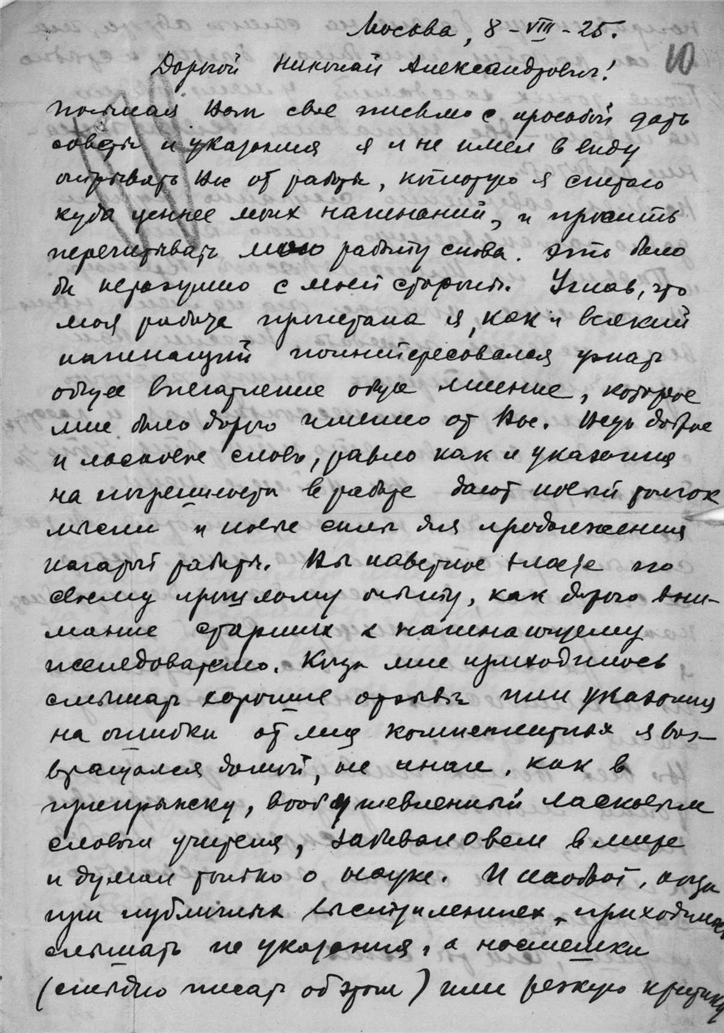 Москва, 8-VIII-25.
10
Дорогой Николай Александрович!
посылая Вам свое письмо с просьбой дать
советы и указания я и не имел в виду
отрывать Вас от работы, которую я считаю
куда ценнее моих начинаний, и просить
перечитывать мою работу снова. Это было
бы неразумно с моей стороны. Узнав, что
моя работа прочитана я, как и всякий
начинающий поинтересовался узнать
общее впечатление общее мнение, которое
мне было дорого именно от Вас. Ведь доброе
и ласковое слово, равно как и указания
на погрешности в работе дают новый толчок
мысли и новые силы для продолжения
начатой работы. Вы наверное знаете по
своему прошлому опыту, как дорого вни-
мание старших к начинающему
исследователю. Когда мне приходилось
слышать хорошие отзывы или указания
на ошибки от лиц компетентных я воз-
вращался домой, не иначе, как в
припрыжку, воодушевленный ласковым
словом учителя, забывал о всем в мире
и думал только о науке. И наоборот, когда
при публичных выступлениях, приходилось
слышать не указания, а насмешки
(стыдно писать об этом) или резкую критику